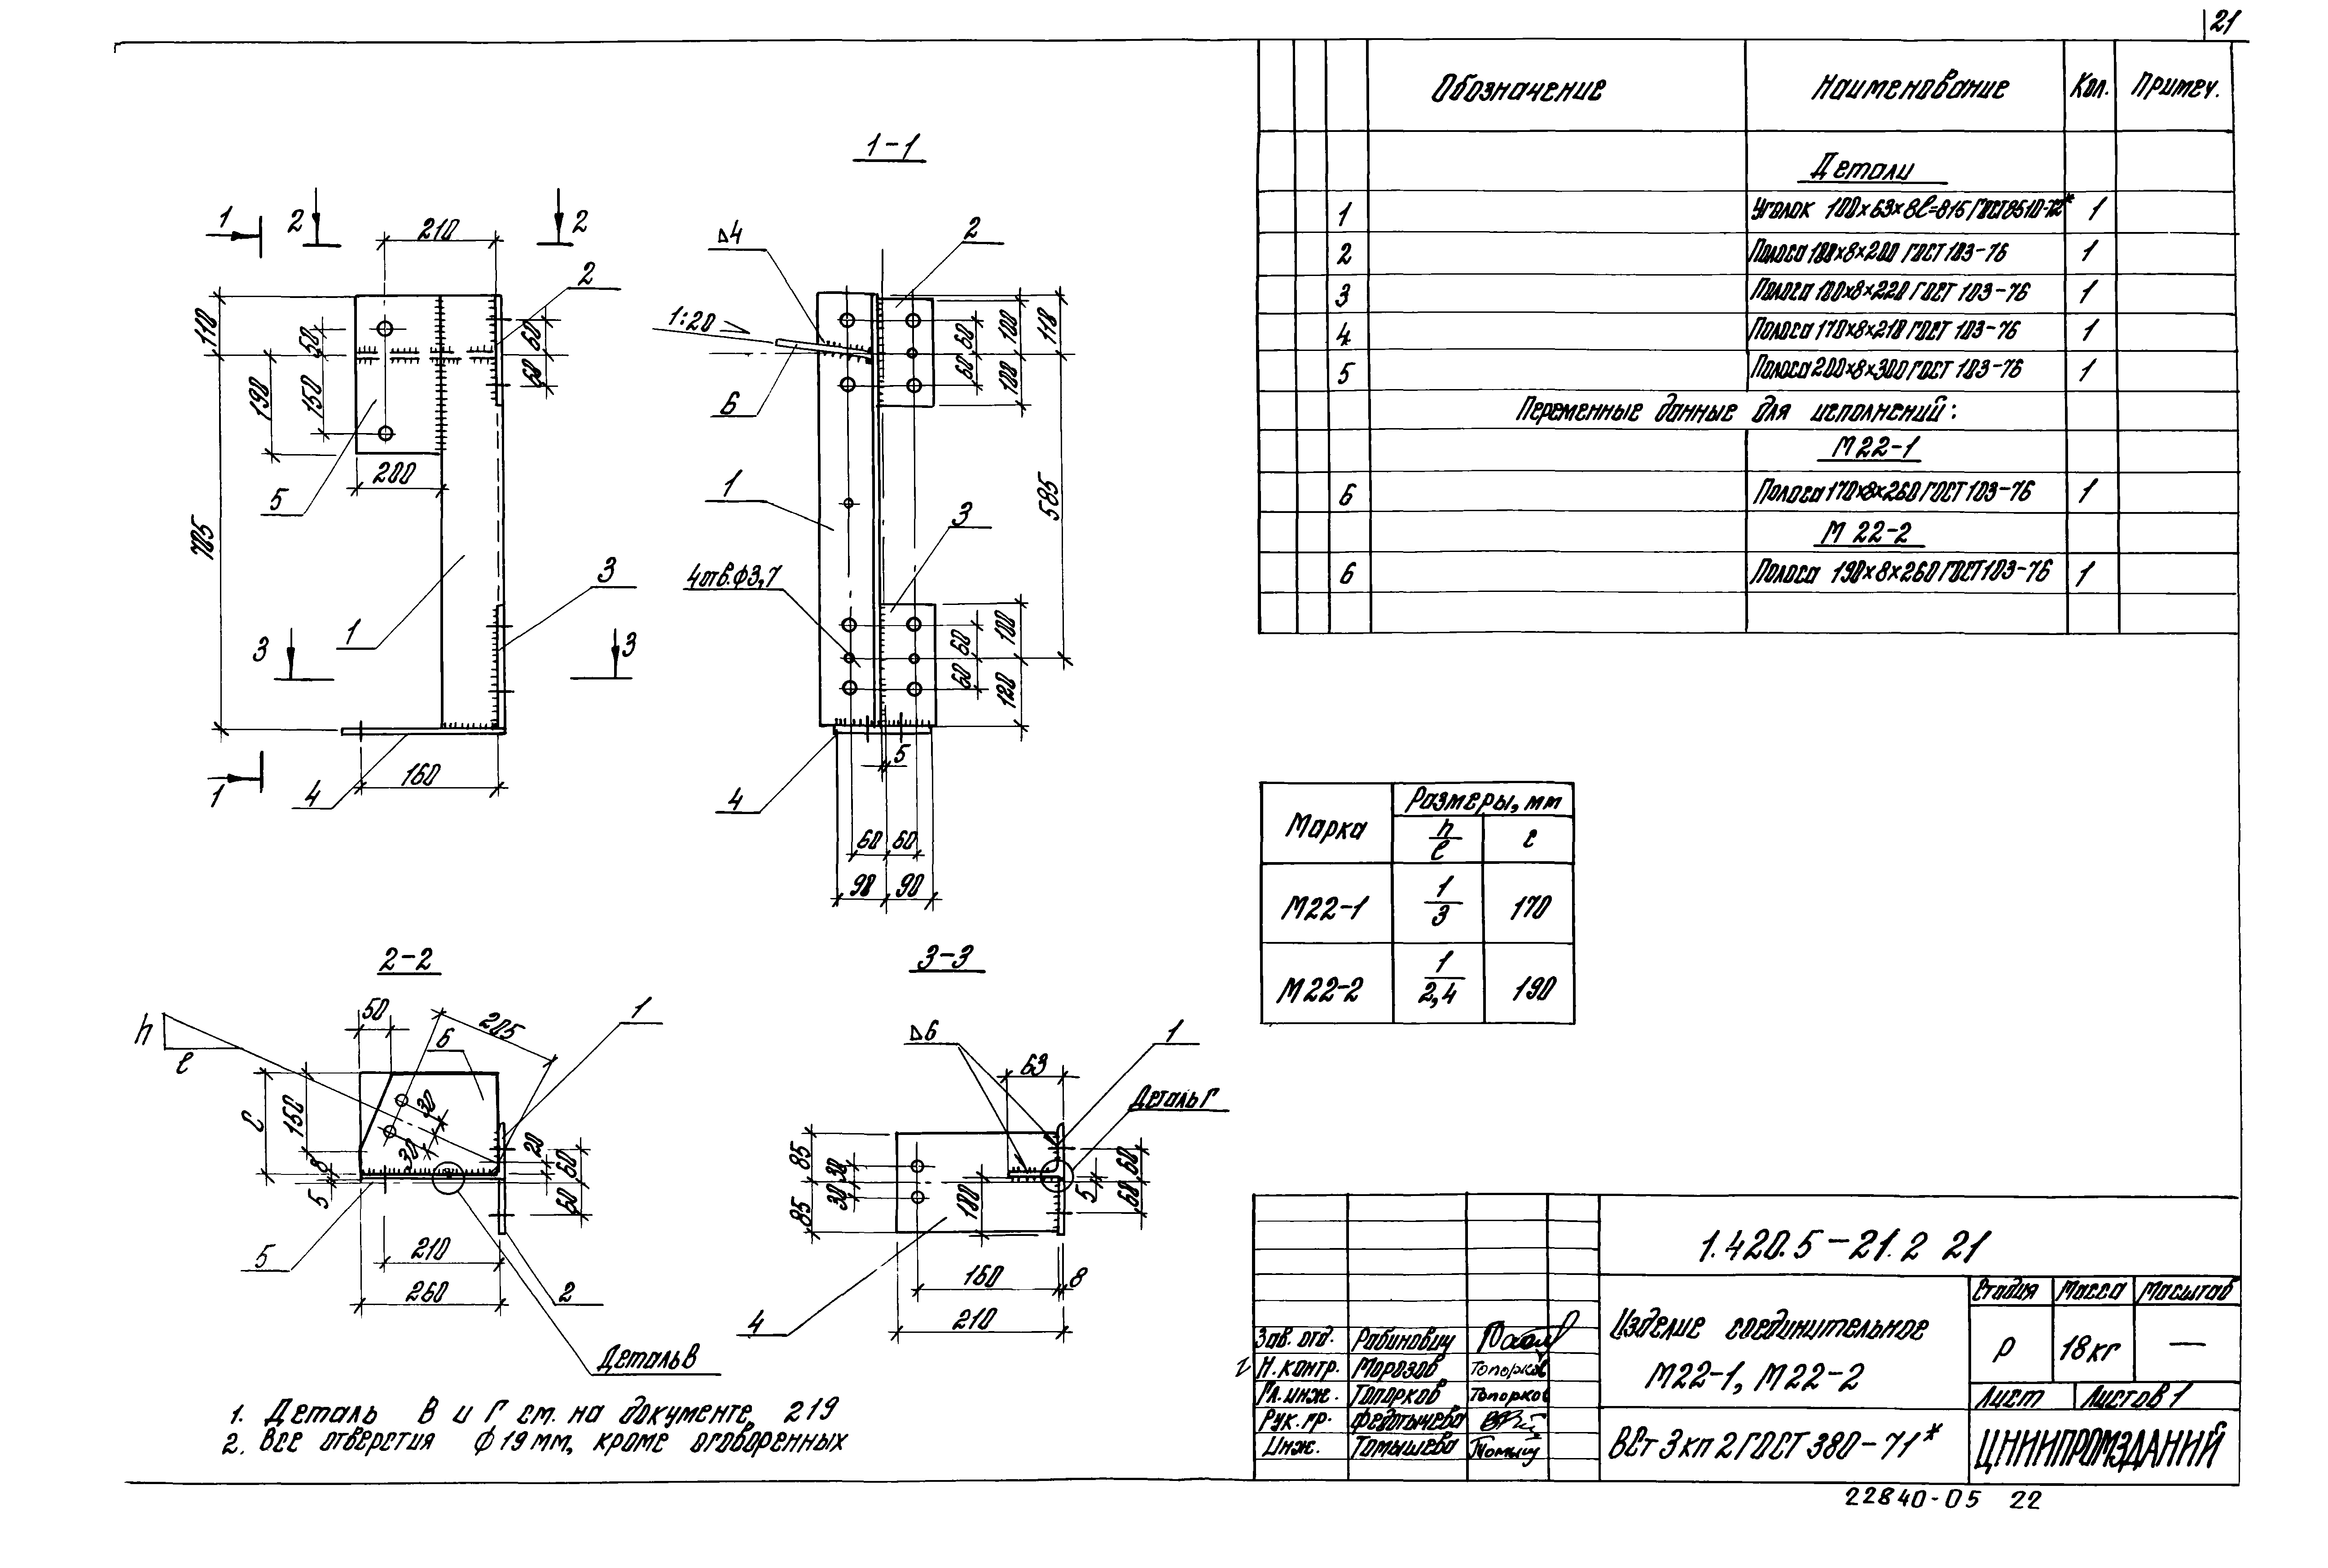 21
Обозначение Наименование Кол. Примеч.
Детали
1 Уголок 100×63×8 ℓ=815 ГОСТ 8510-72* 1
2 Полоса 100×8×200 ГОСТ 103-76 1
3 Полоса 100×8×220 ГОСТ 103-76 1
4 Полоса 170×8×210 ГОСТ 103-76 1
5 Полоса 200×8×300 ГОСТ 103-76 1
Переменные данные для исполнений:
М22-1
6 Полоса 170×8×260 ГОСТ 103-76 1
М 22-2
6 Полоса 190×8×260 ГОСТ 103-76 1
1 2 2
210
2
110
50
60
60
190
150
200
5
705
1
3
3 3
160
1 4
1-1
Δ4 2
1:20
6
60
60
100
100
110
1
585
3
4 отв. ф3,7
60
60
100
120
5
4
60 60
98 90
Марка Размеры, мм
h/ℓ c
М22-1 1/3 170
М22-2 1/2,4 190
2-2
50 205 1
h
ℓ
6
c
150
30
30
8
5
20
60
60
5
210
260
2
Деталь В
3-3
Δ6 1
63
Деталь Г
85
85
30
30
100
5
60
60
160 8
210
4
1. Деталь В и Г см. на документе 219
2. Все отверстия ф 19 мм, кроме оговоренных
1.420.5-21.2 21
Изделие соединительное
М22-1, М22-2
Стадия Масса Масштаб
Р 18 кг —
Лист Листов 1
ВСт 3 кп 2 ГОСТ 380-71*
ЦНИИПРОМЗДАНИЙ
Зав. отд. Рабинович
Н. контр. Морозов Топорков
Гл. инж. Топорков Топорков
Рук. гр. Федотычева
Инж. Томышева Томыш
22840-05 22